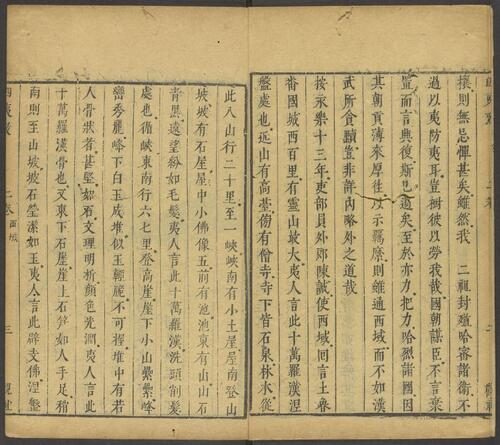 攘則無忌憚甚矣雖然我 二祖封殖哈審諸衛不
過以夷防夷耳豈損彼以勞我哉國朝謀臣不言棄
置而言興復斯已過矣至於赤力把力哈烈諸國因
其朝貢薄來厚往以示羈縻則雖通西域而不如漢
武所貪黷豈非詳內略外之道哉
按永樂十三年吏部員外郎陳誠使西域回言土魯
番國城西百里有靈山最大夷人言此十萬羅漢涅
盤處也近山有高臺傍有僧寺寺下皆石泉林木從
此入山行二十里至一峽峽南有小土屋屋南登山
坡坡有石屋屋中小佛像五前有池池東有山山石
青黑遠望紛如毛髮夷人言此十萬羅漢洗頭削髮
處也循峽東南行六七里登高崖崖下小山纍纍峰
巒秀麗峰下白玉成堆似玉輕脆不可握堆中有若
人骨狀者甚堅如石文理明析顏色光潤夷人言此
十萬羅漢骨也又東下石崖崖上石笋如人手足稍
南則至山坡坡石瑩潔如玉夷人言此辟支佛涅盤
四夷考 二卷 西域 三